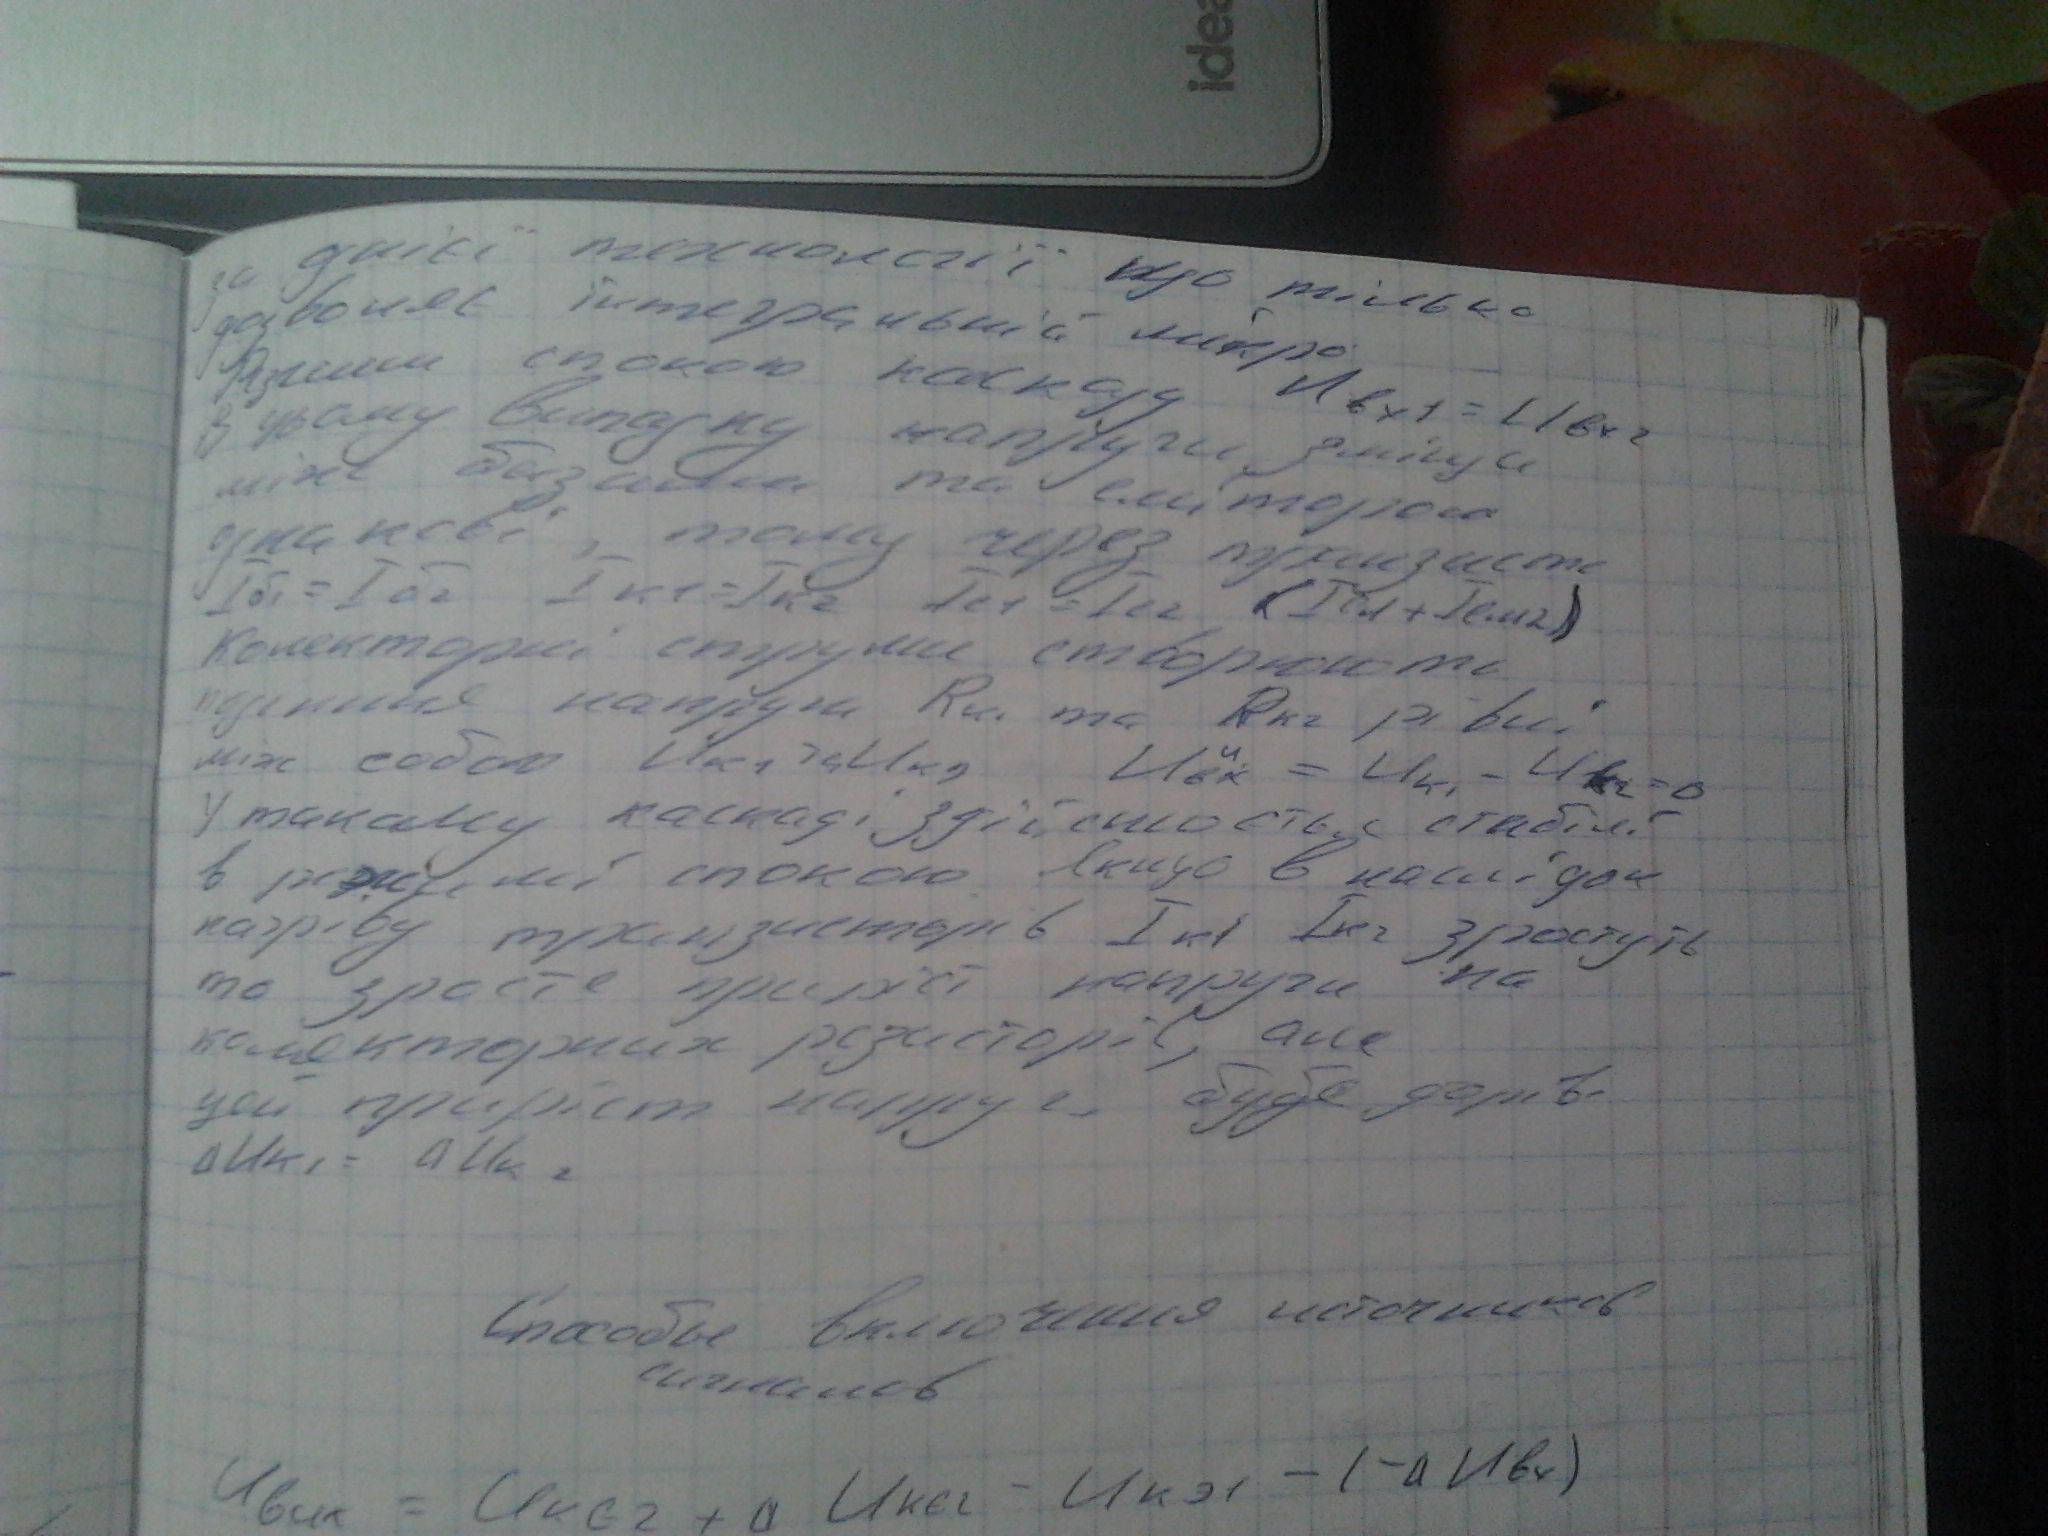 idea
за однієї технології що тілько
дозволяє інтегральній мікро
Режим спокою каскаду Uвх1 = Uвх2
В цьому випадку напруги зміщен
між базами та емітором
однакові, тому через транзист
Iб1 = Iб2 Iк1 = Iк2 Iе1 = Iе2 (Iем1 + Iем2)
Колекторні струми створюють
падіння напруги Rк1 та Rк2 рівні
між собою Uк1 Uк2 Uвих = Uк1 - Uк2 = 0
У такому каскаді здійснюється стабілі
в режимі спокою. Якщо в наслідок
нагріву транзисторів Iк1 Iк2 зростуть
то зросте приріст напруги на
колекторних резисторів, але
цей приріст напруги буде дорів
ΔUк1 = ΔUк2
Способы включения источников
сигналов
Uвих = Uкє2 + Δ Uкє2 - Uкэ1 - (-Δ Uвх)